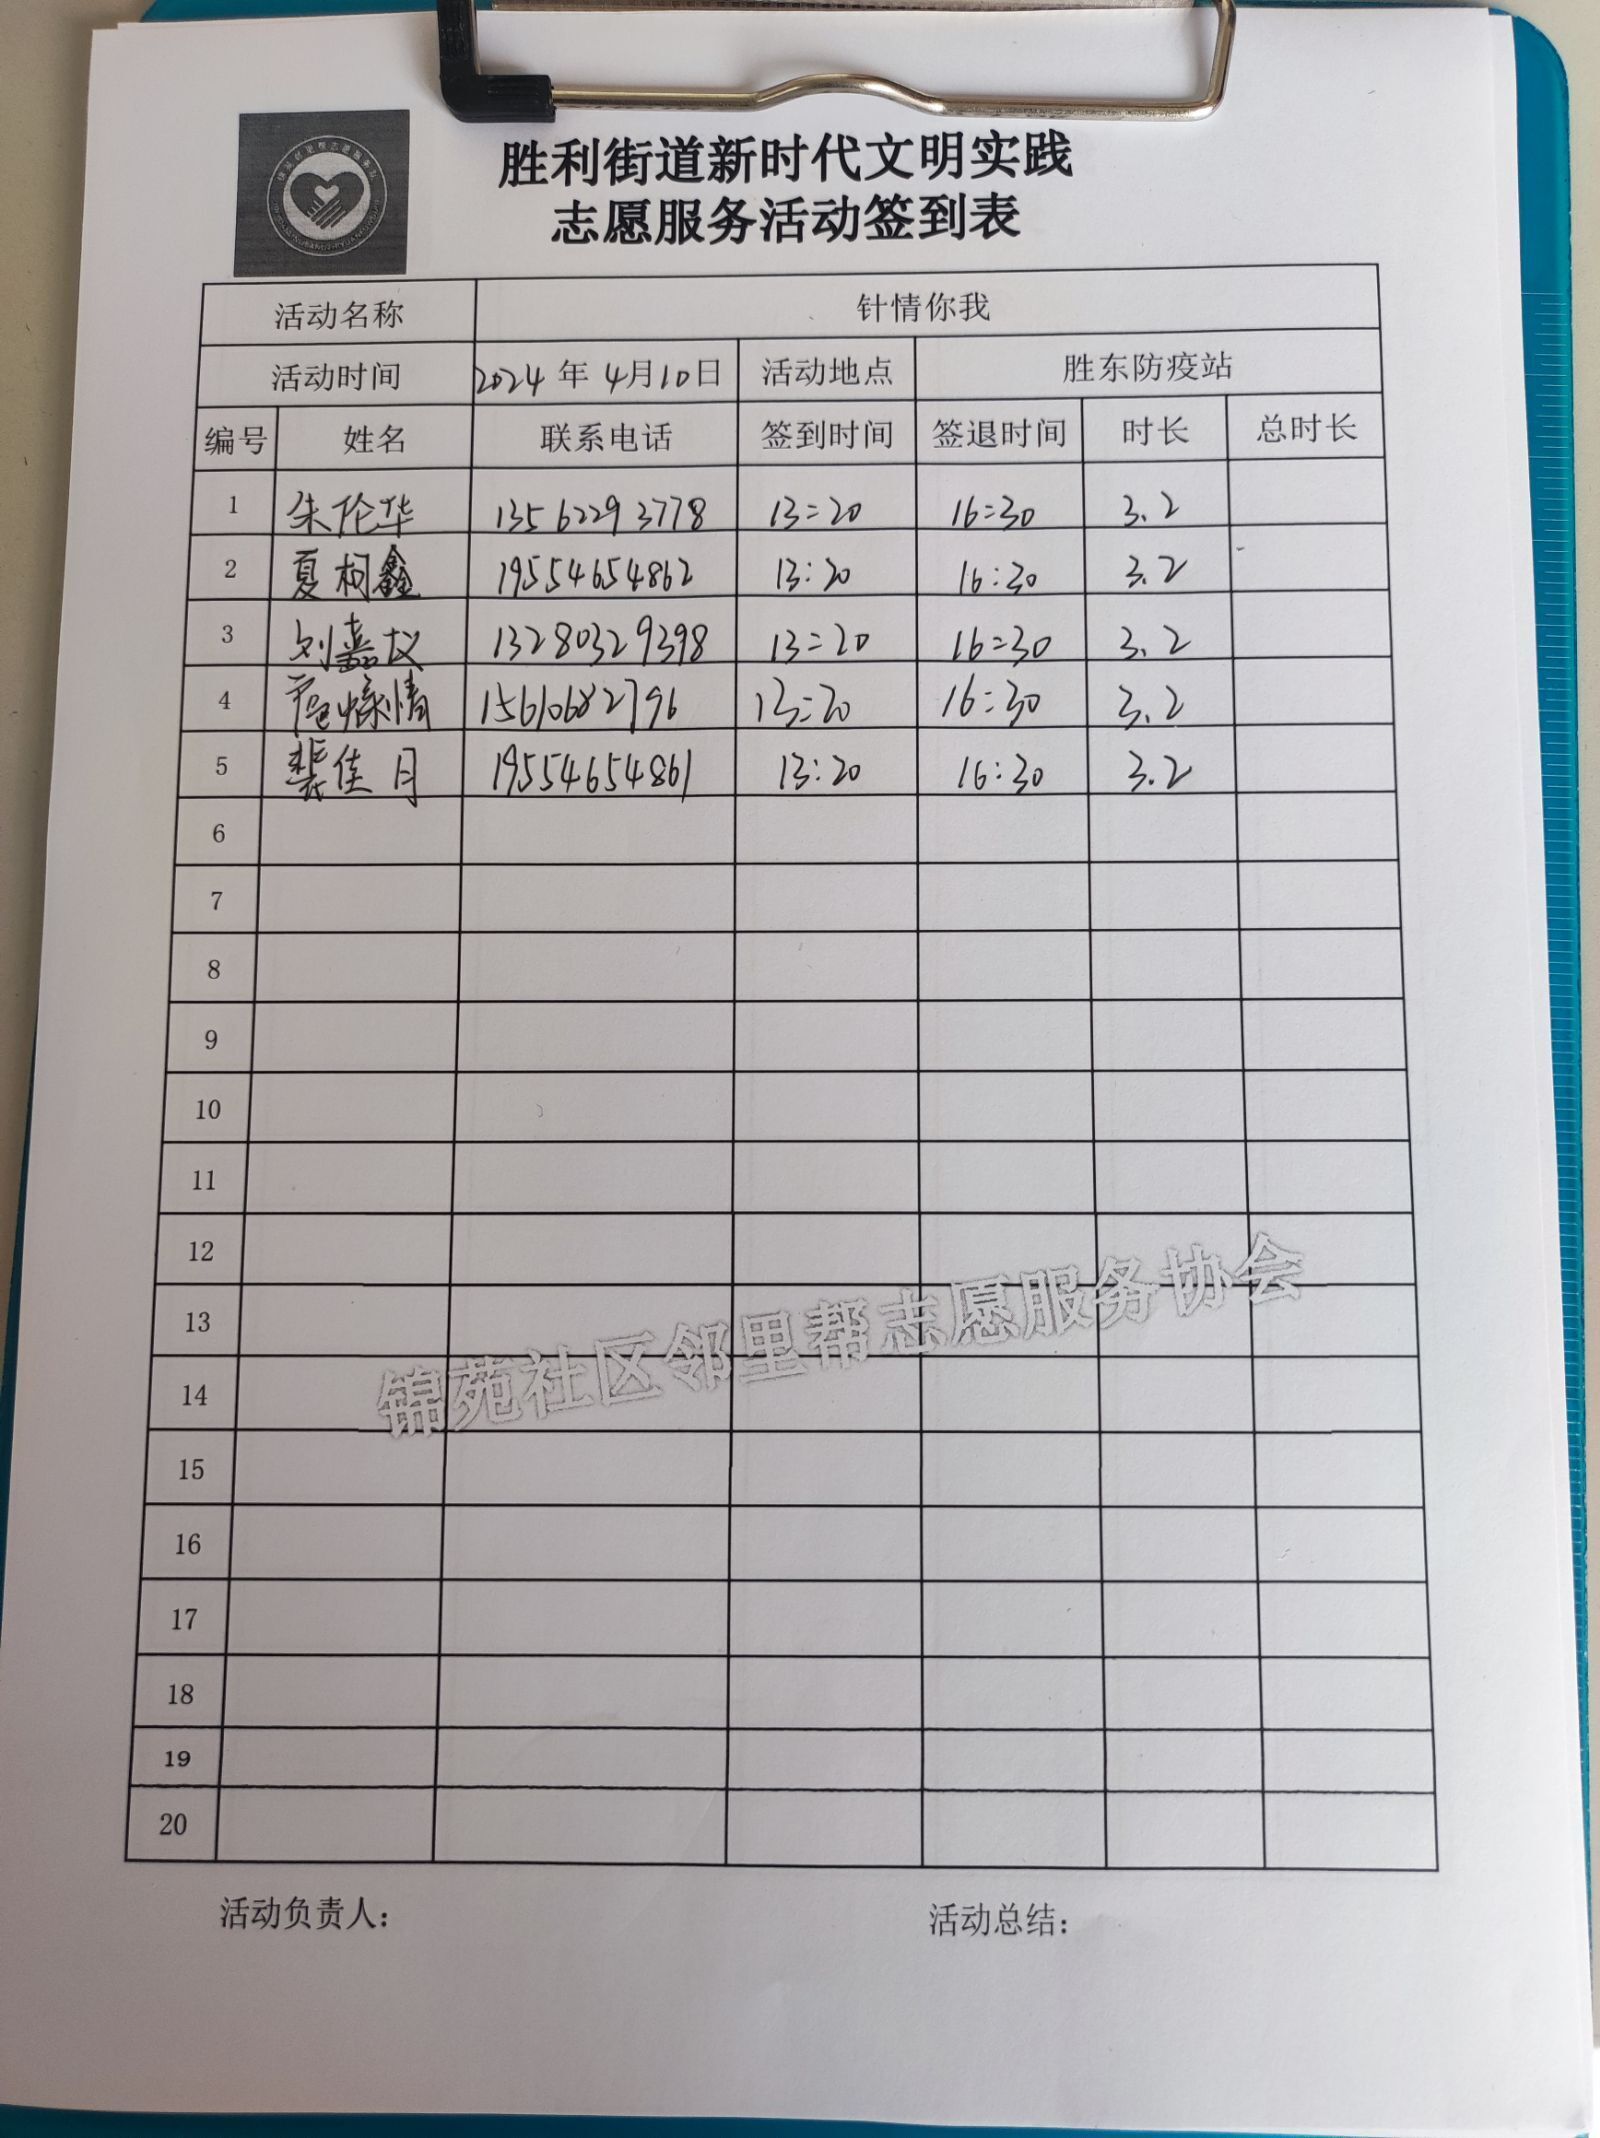 胜利街道新时代文明实践
志愿服务活动签到表
活动名称 针情你我
活动时间 2024年 4月10日 活动地点 胜东防疫站
编号 姓名 联系电话 签到时间 签退时间 时长 总时长
1 朱伦华 13562293778 13:20 16:30 3.2
2 夏柯鑫 19554654862 13:20 16:30 3.2
3 刘嘉仪 13280329398 13:20 16:30 3.2
4 15610682796 13:20 16:30 3.2
5 裴佳月 19554654861 13:20 16:30 3.2
6
7
8
9
10
11
12
13
14
15
16
17
18
19
20
锦苑社区邻里帮志愿服务协会
活动负责人： 活动总结：